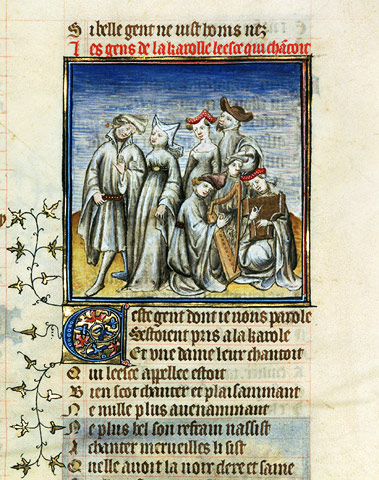 Si belle gent ne vist homs nez
Les gens de la karolle leesce qui chantoit
Ceste gent dont ie uous parole
Sestoient pris a la karole
Et vne dame leur chantoit
Qui leesce appellee estoit
Bien scot chanter et plaisammant
Ne nulle plus auenammant
Ne plus bel son refrain nassist
A chanter merueilles li sist
Quelle auoit la uoix clere et saine